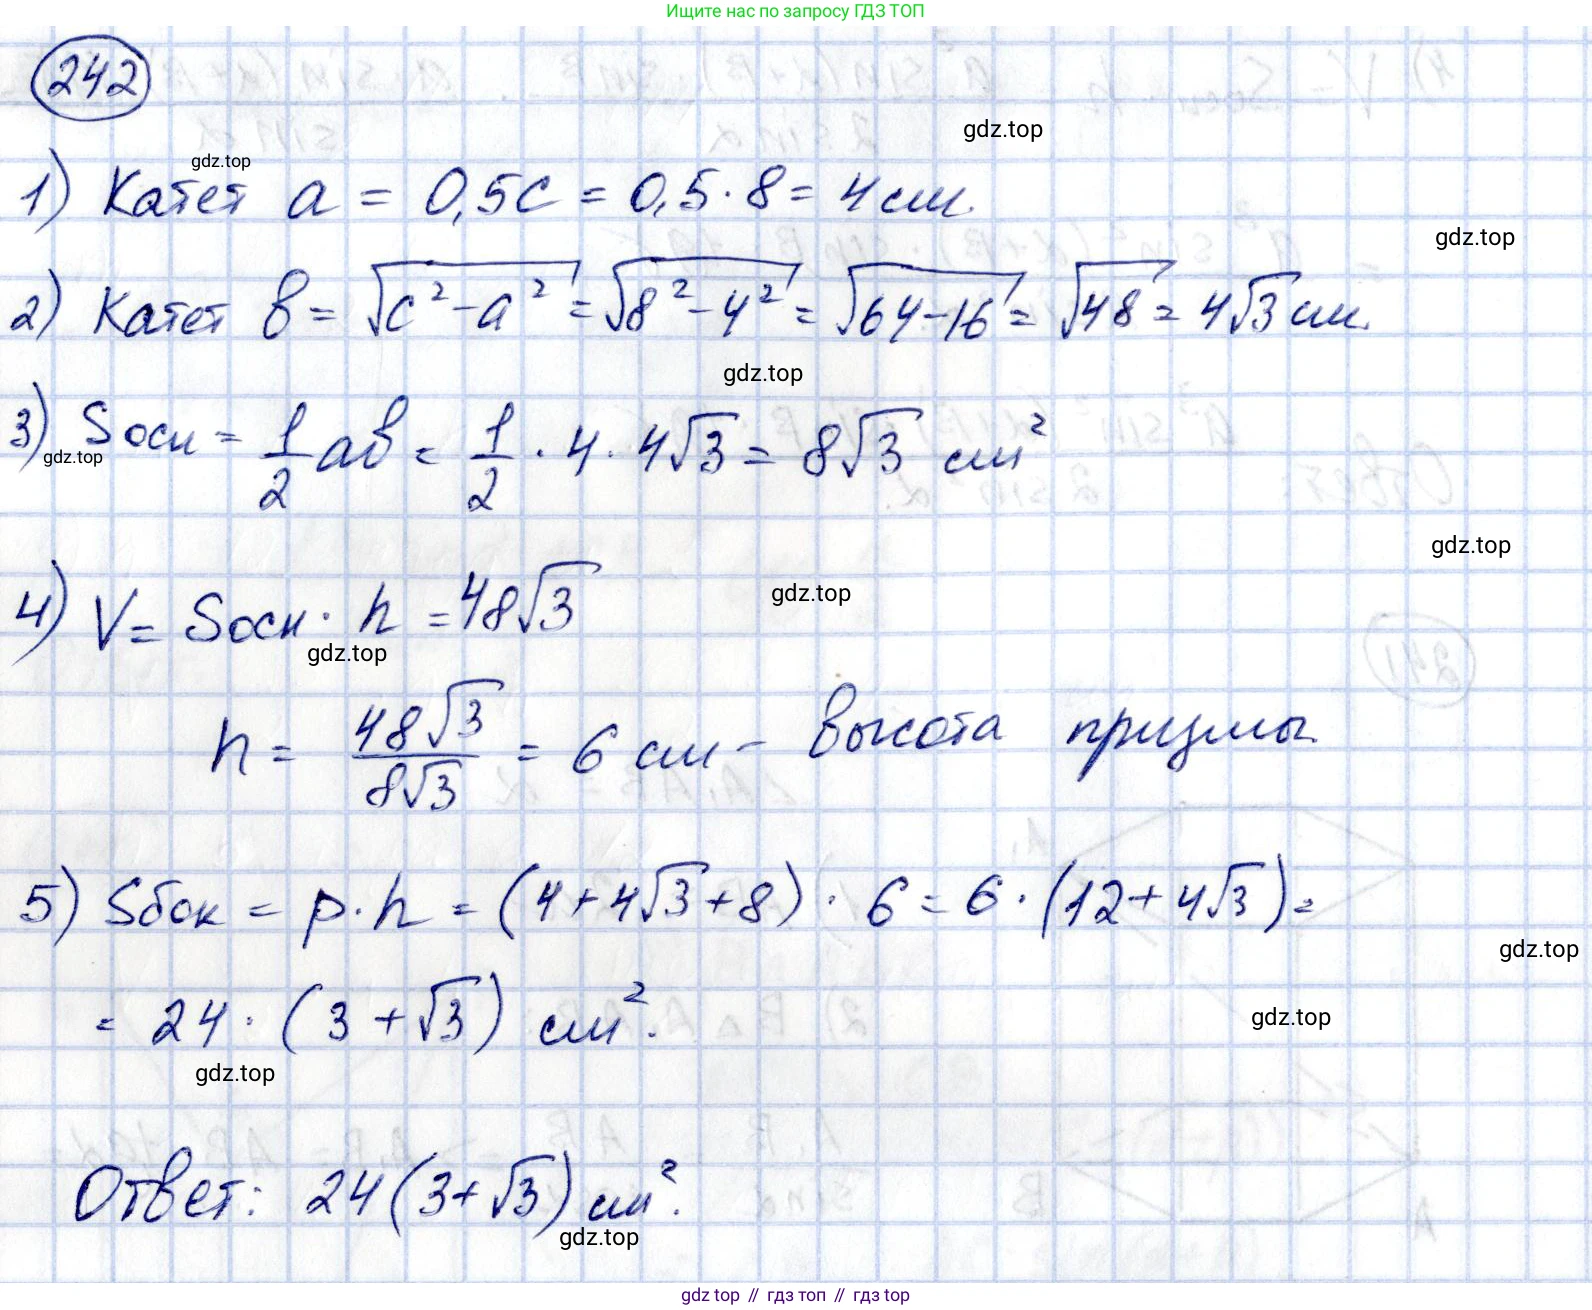 Ищите нас по запросу ГДЗ ТОП
242
gdz.top
gdz.top
1) Катет a = 0,5c = 0,5 · 8 = 4 см.
gdz.top
2) Катет b = √(c² - a²) = √(8² - 4²) = √(64 - 16) = √48 = 4√3 см.
gdz.top
3) Sосн = 1/2 ab = 1/2 · 4 · 4√3 = 8√3 см²
gdz.top
gdz.top
4) V = Sосн · h = 48√3
gdz.top
gdz.top
h = 48√3/8√3 = 6 см - высота призмы.
5) Sбок = p · h = (4 + 4√3 + 8) · 6 = 6 · (12 + 4√3) =
gdz.top
= 24 · (3 + √3) см².
gdz.top
gdz.top
Ответ: 24(3+√3) см².
gdz.top
gdz top // гдз топ // гдз top